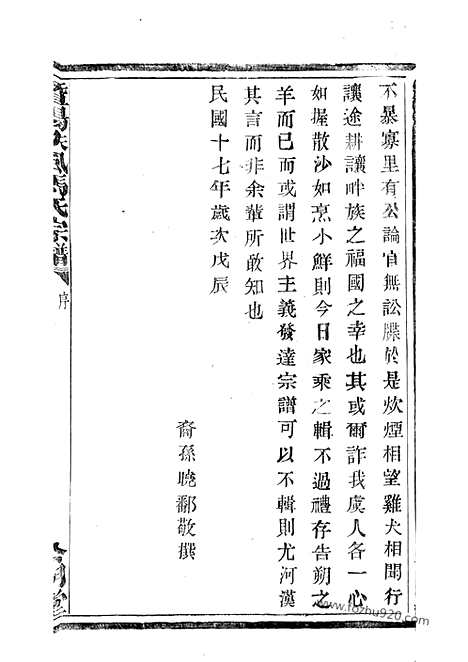 不暴寡里有公論自無訟牒於是炊煙相望雞犬相聞行
讓途耕讓畔族之福國之幸也其或爾詐我虞人各一心
如握散沙如烹小鮮則今日家乘之輯不過禮存告朔之
羊而已而或謂世界主義發達宗譜可以不輯則尤河漢
其言而非余輩所敢知也
民國十七年歲次戊辰
裔孫曉鄱敬撰
暨陽扶風馬氏宗譜
序
www.fozhu920.com